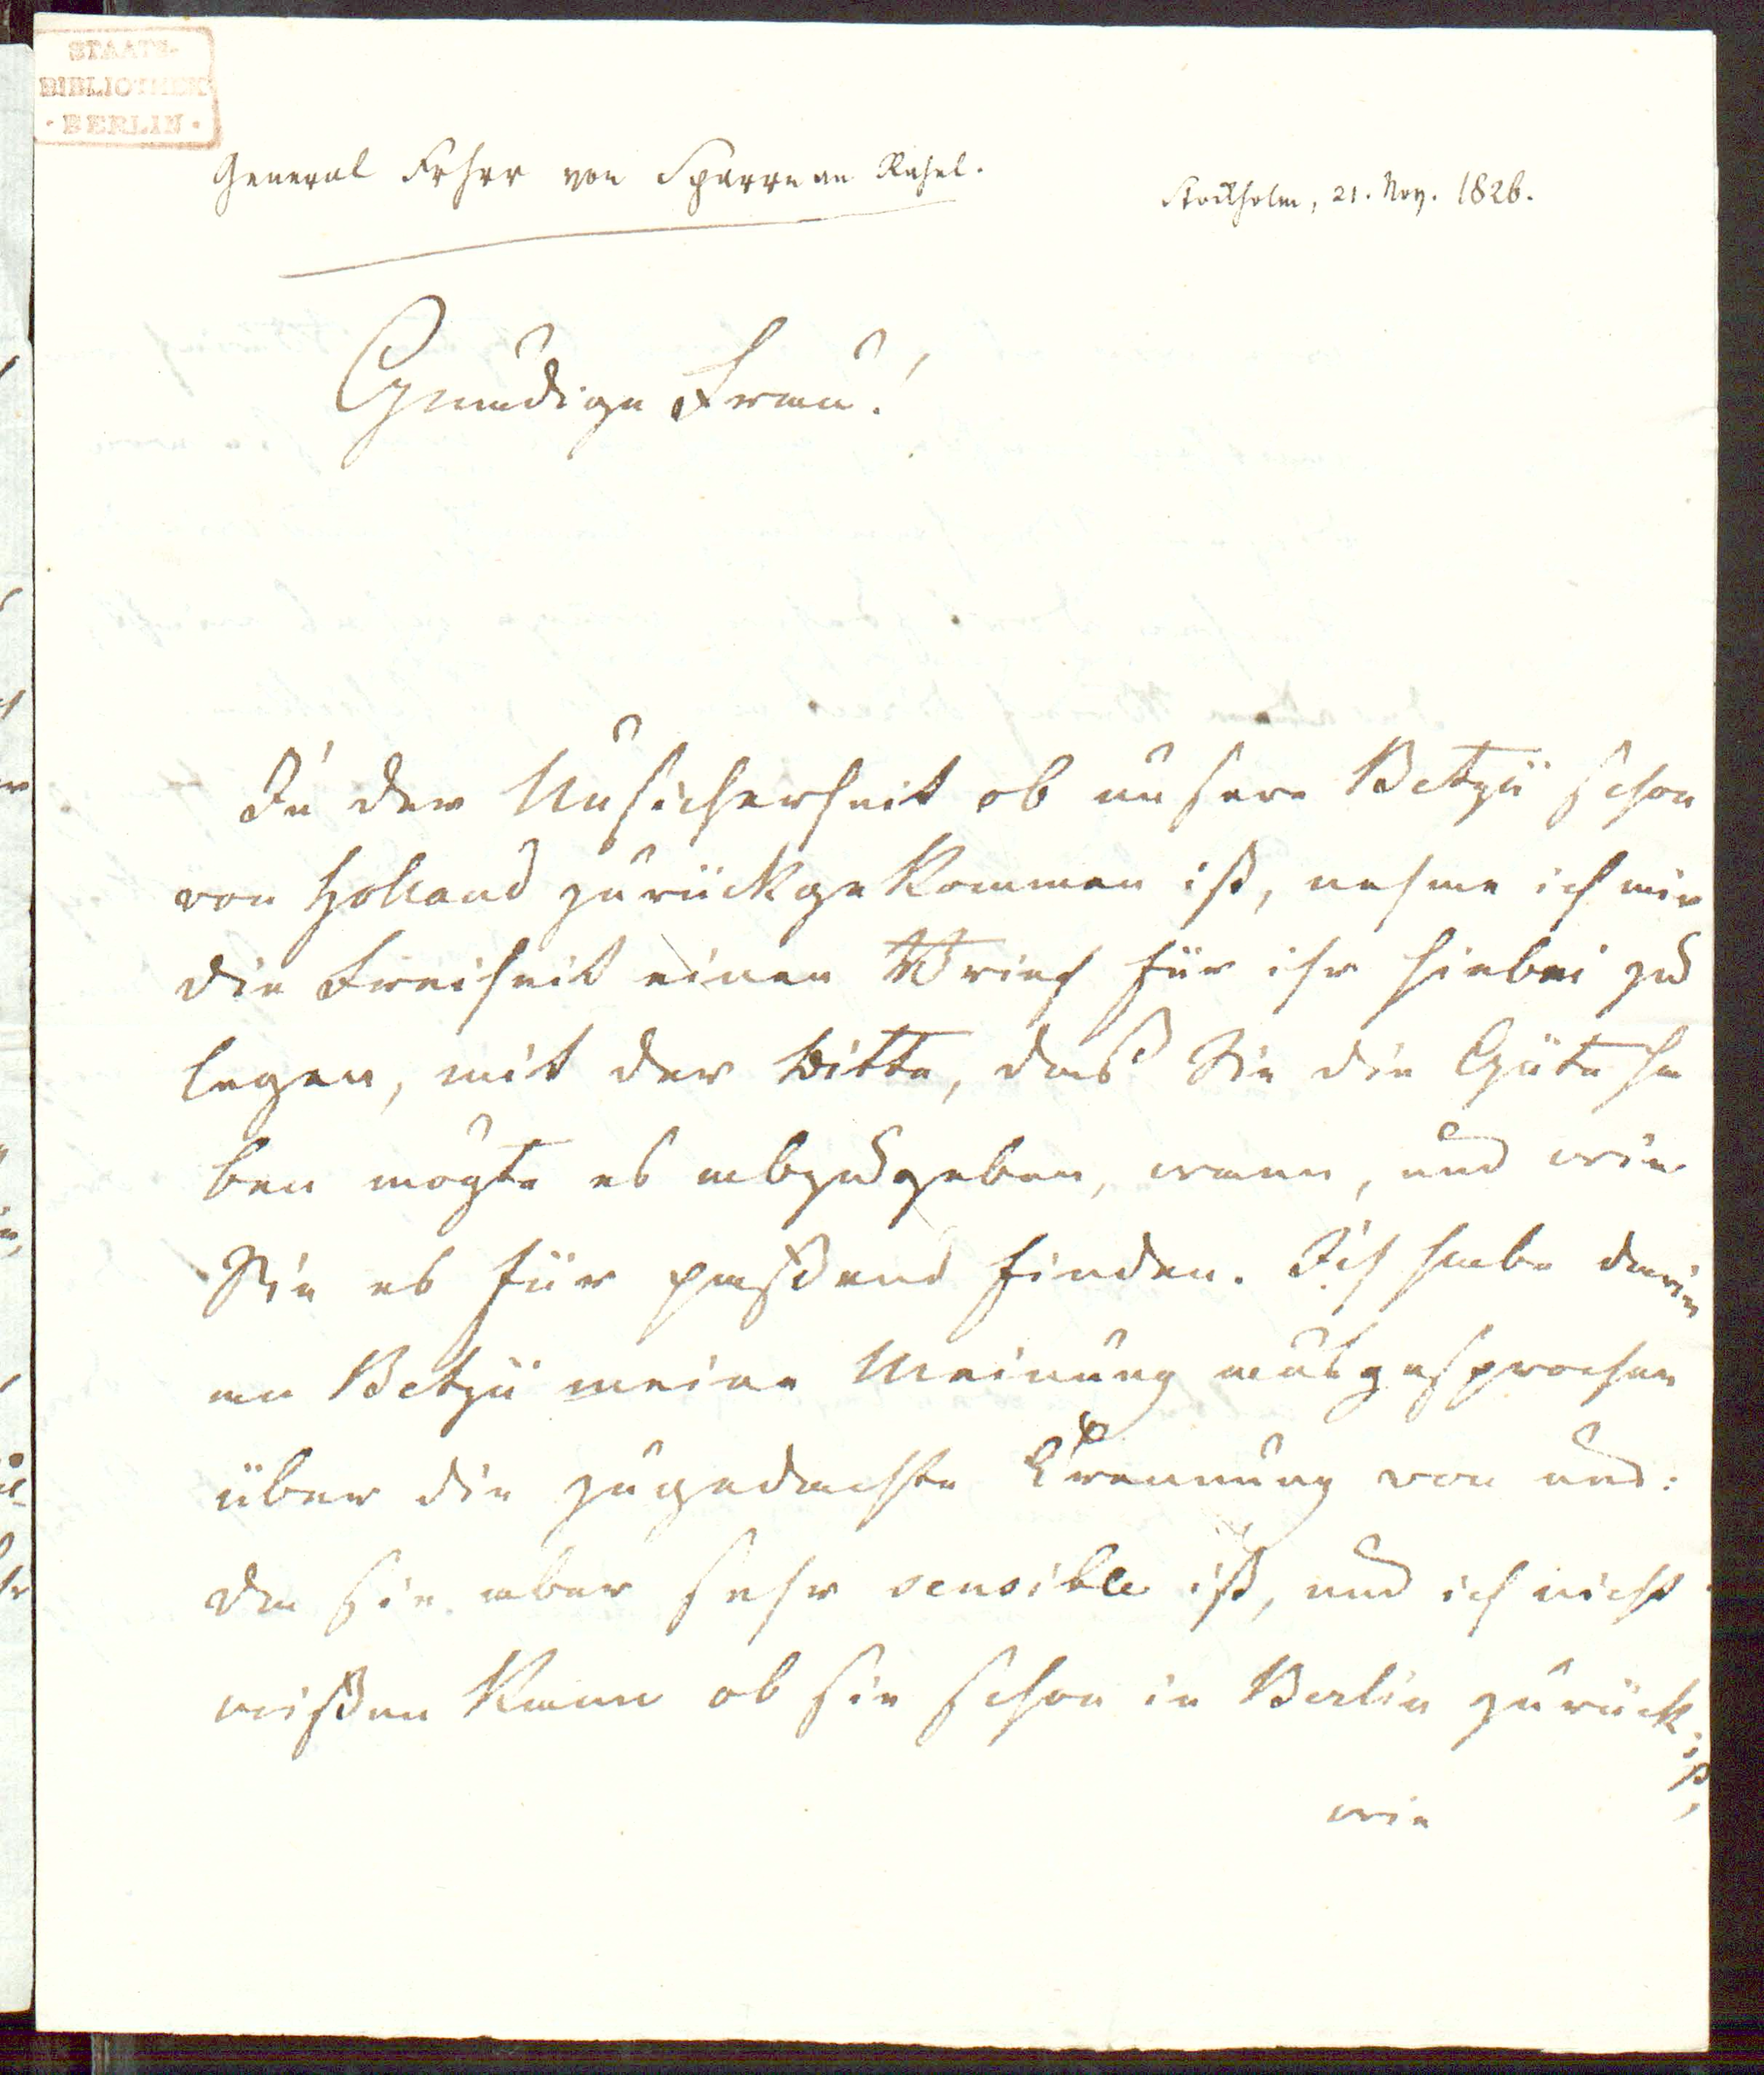 STAATS-
BIBLIOTHEK
· BERLIN ·
General Frhrr von Sparre an Rahel.
Stockholm, 21. Nov. 1826.
Gnädige Frau!
In der Unsicherheit ob unsere Betzü schon
von Holland zurückgekommen ist, nehme ich mir
die Freiheit einen Brief für ihr hiebei zu
legen, mit der Bitte, daß Sie die Güte ha
ben mögte es abzugeben, wann, und wie
Sie es für paßend finden. Ich habe darin
an Betzü meine Meinung ausgesprochen
über die zugedachte Trennung von uns:
da sie aber sehr sensible ist, und ich nicht
wißen kann ob sie schon in Berlin zurück ist,
wie